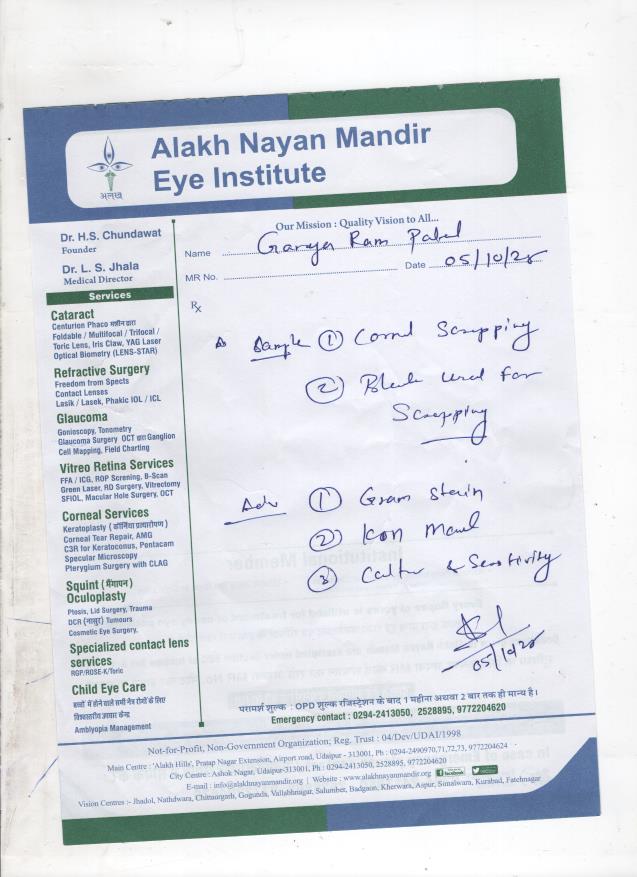 अलख
Alakh Nayan Mandir
Eye Institute
Dr. H.S. Chundawat
Founder
Dr. L. S. Jhala
Medical Director
Services
Cataract
Centurion Phaco मशीन द्वारा
Foldable / Multifocal / Trifocal /
Toric Lens, Iris Claw, YAG Laser
Optical Biometry (LENS-STAR)
Refractive Surgery
Freedom from Spects
Contact Lenses
Lasik / Lasek, Phakic IOL / ICL
Glaucoma
Gonioscopy, Tonometry
Glaucoma Surgery OCT द्वारा Ganglion
Cell Mapping, Field Charting
Vitreo Retina Services
FFA / ICG, ROP Screning, B-Scan
Green Laser, RD Surgery, Vitrectomy
SFIOL, Macular Hole Surgery, OCT
Corneal Services
Keratoplasty (कॉर्निया प्रत्यारोपण)
Corneal Tear Repair, AMG
C3R for Keratoconus, Pentacam
Specular Microscopy
Pterygium Surgery with CLAG
Squint (भैंगापन)
Oculoplasty
Ptosis, Lid Surgery, Trauma
DCR (नासूर) Tumours
Cosmetic Eye Surgery,
Specialized contact lens
services
RGP/ROSE-K/Toric
Child Eye Care
बच्चों में होने वाले सभी नेत्र रोगों के लिए
विश्वस्तरीय उपचार केन्द्र
Amblyopia Management
Our Mission : Quality Vision to All...
Name Ram Patel
MR No. Date 05/10/28
Rx
Sample ① Scrapping
② Blade used for
Scrapping
Adv ① Gram Stain
② KOH
③ & Sensitivity
05/10/28
परामर्श शुल्क : OPD शुल्क रजिस्ट्रेशन के बाद 1 महीना अथवा 2 बार तक ही मान्य है।
Emergency contact : 0294-2413050, 2528895, 9772204620
Not-for-Profit, Non-Government Organization; Reg. Trust : 04/Dev/UDAI/1998
Main Centre : 'Alakh Hills', Pratap Nagar Extension, Airport road, Udaipur - 313001, Ph : 0294-2490970,71,72,73, 9772204624
City Centre : Ashok Nagar, Udaipur-313001, Ph : 0294-2413050, 2528895, 9772204620
E-mail : info@alakhnayanmandir.org | Website : www.alakhnayanmandir.org
Vision Centres :- Jhadol, Nathdwara, Chittaurgarh, Gogunda, Vallabhnagar, Salumber, Badgaon, Kherwara, Aspur, Sunalwara, Kurabad, Fatehnagar